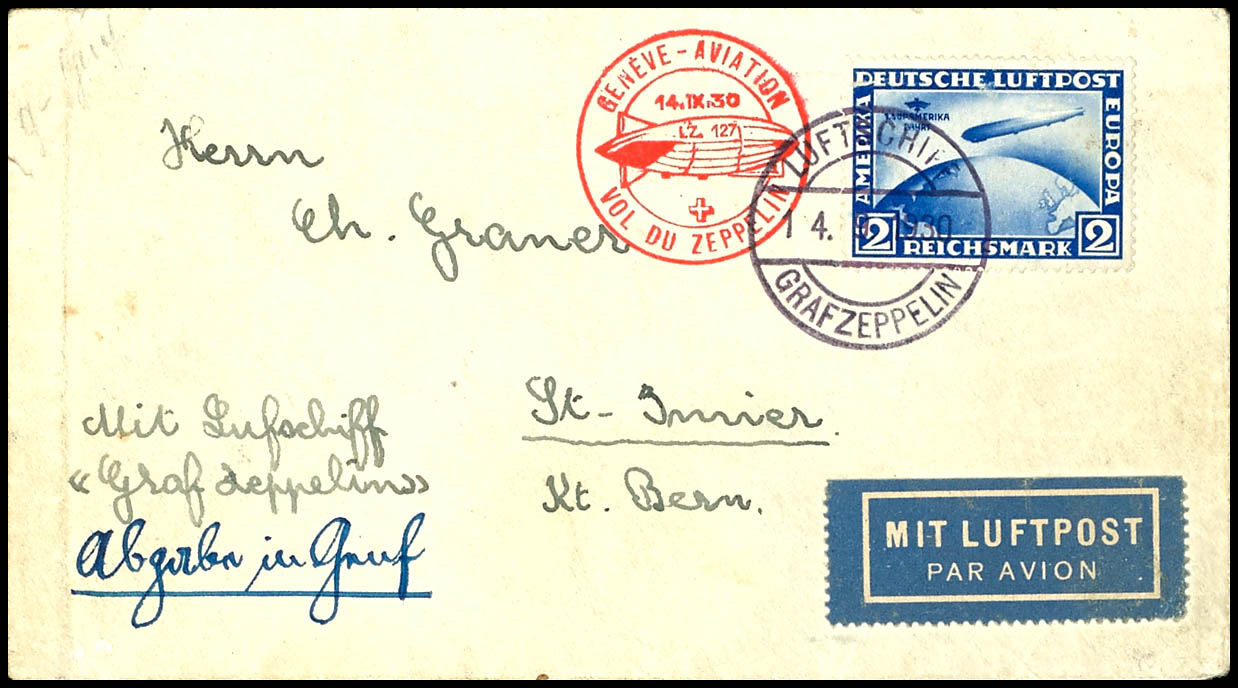 GENÈVE - AVIATION
14.IX.30
LZ 127
VOL DU ZEPPELIN
DEUTSCHE LUFTPOST
AMERIKA
EUROPA
1. SÜDAMERIKA
FAHRT
2 REICHSMARK 2
LUFTSCHIFF
14. 9. 1930
GRAF ZEPPELIN
Herrn
Ch. Graner
St-Imier
Kt. Bern.
Mit Lufschiff
«Graf Zeppelin»
Abgabe in Genf
MIT LUFTPOST
PAR AVION